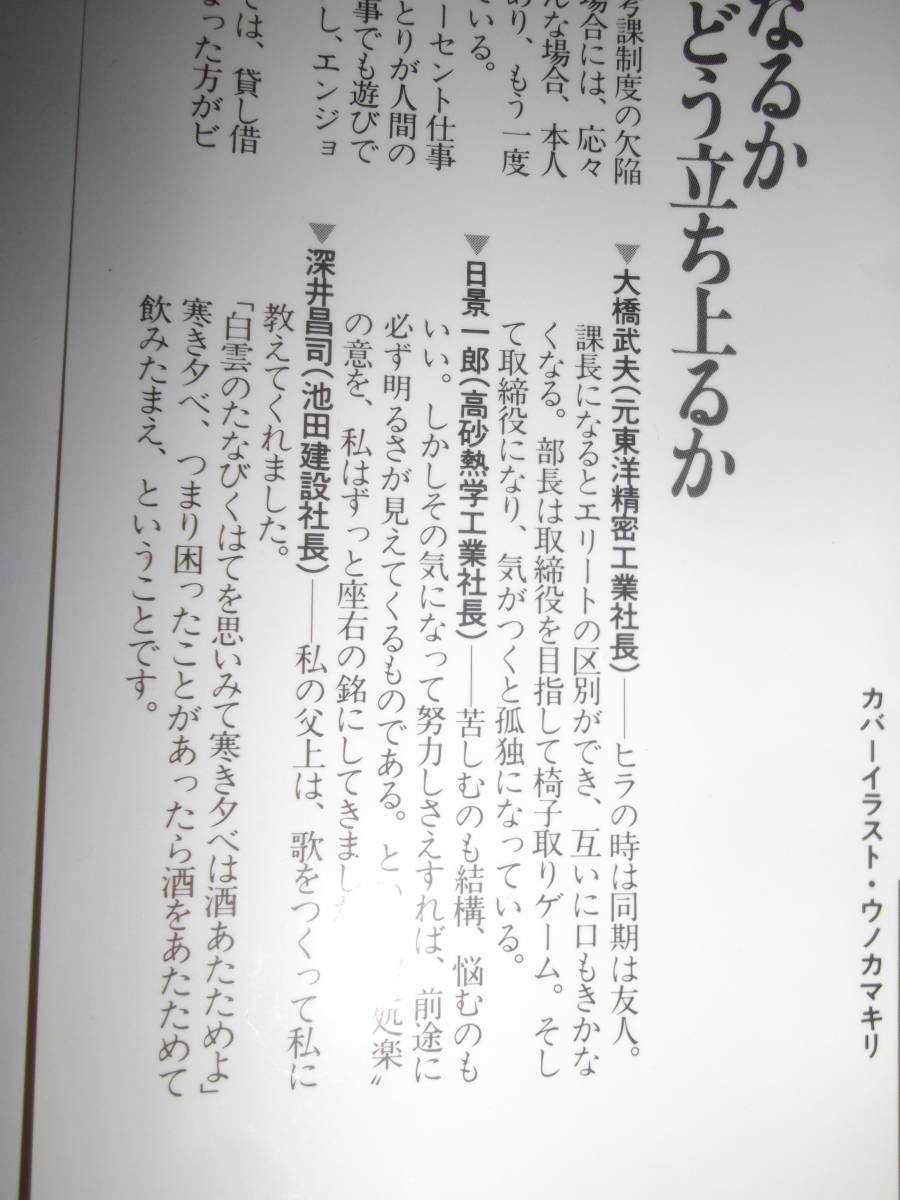 なるか
どう立ち上るか
考課制度の欠陥
場合には、応々
んな場合、本人
あり、もう一度
いる。
ーセント仕事
とりが人間の
事でも遊びで
し、エンジョ
ては、貸し借
まった方がビ
▼大橋武夫(元東洋精密工業社長)――ヒラの時は同期は友人。
課長になるとエリートの区別ができ、互いに口もきかな
くなる。部長は取締役を目指して椅子取りゲーム。そし
て取締役になり、気がつくと孤独になっている。
▼日景一郎(高砂熱学工業社長)――苦しむのも結構、悩むのも
いい。しかしその気になって努力しさえすれば、前途に
必ず明るさが見えてくるものである。とい 処楽〟
の意を、私はずっと座右の銘にしてきました
▼深井昌司(池田建設社長)――私の父上は、歌をつくって私に
教えてくれました。
「白雲のたなびくはてを思いみて寒き夕べは酒あたためよ」
寒き夕べ、つまり困ったことがあったら酒をあたためて
飲みたまえ、ということです。
カバーイラスト・ウノカマキリ